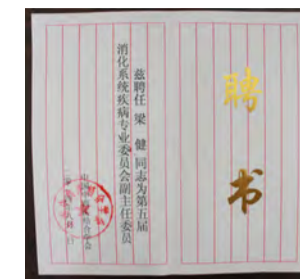 聘书
兹聘任 梁 健 同志为第五届
消化系统疾病专业委员会副主任委员